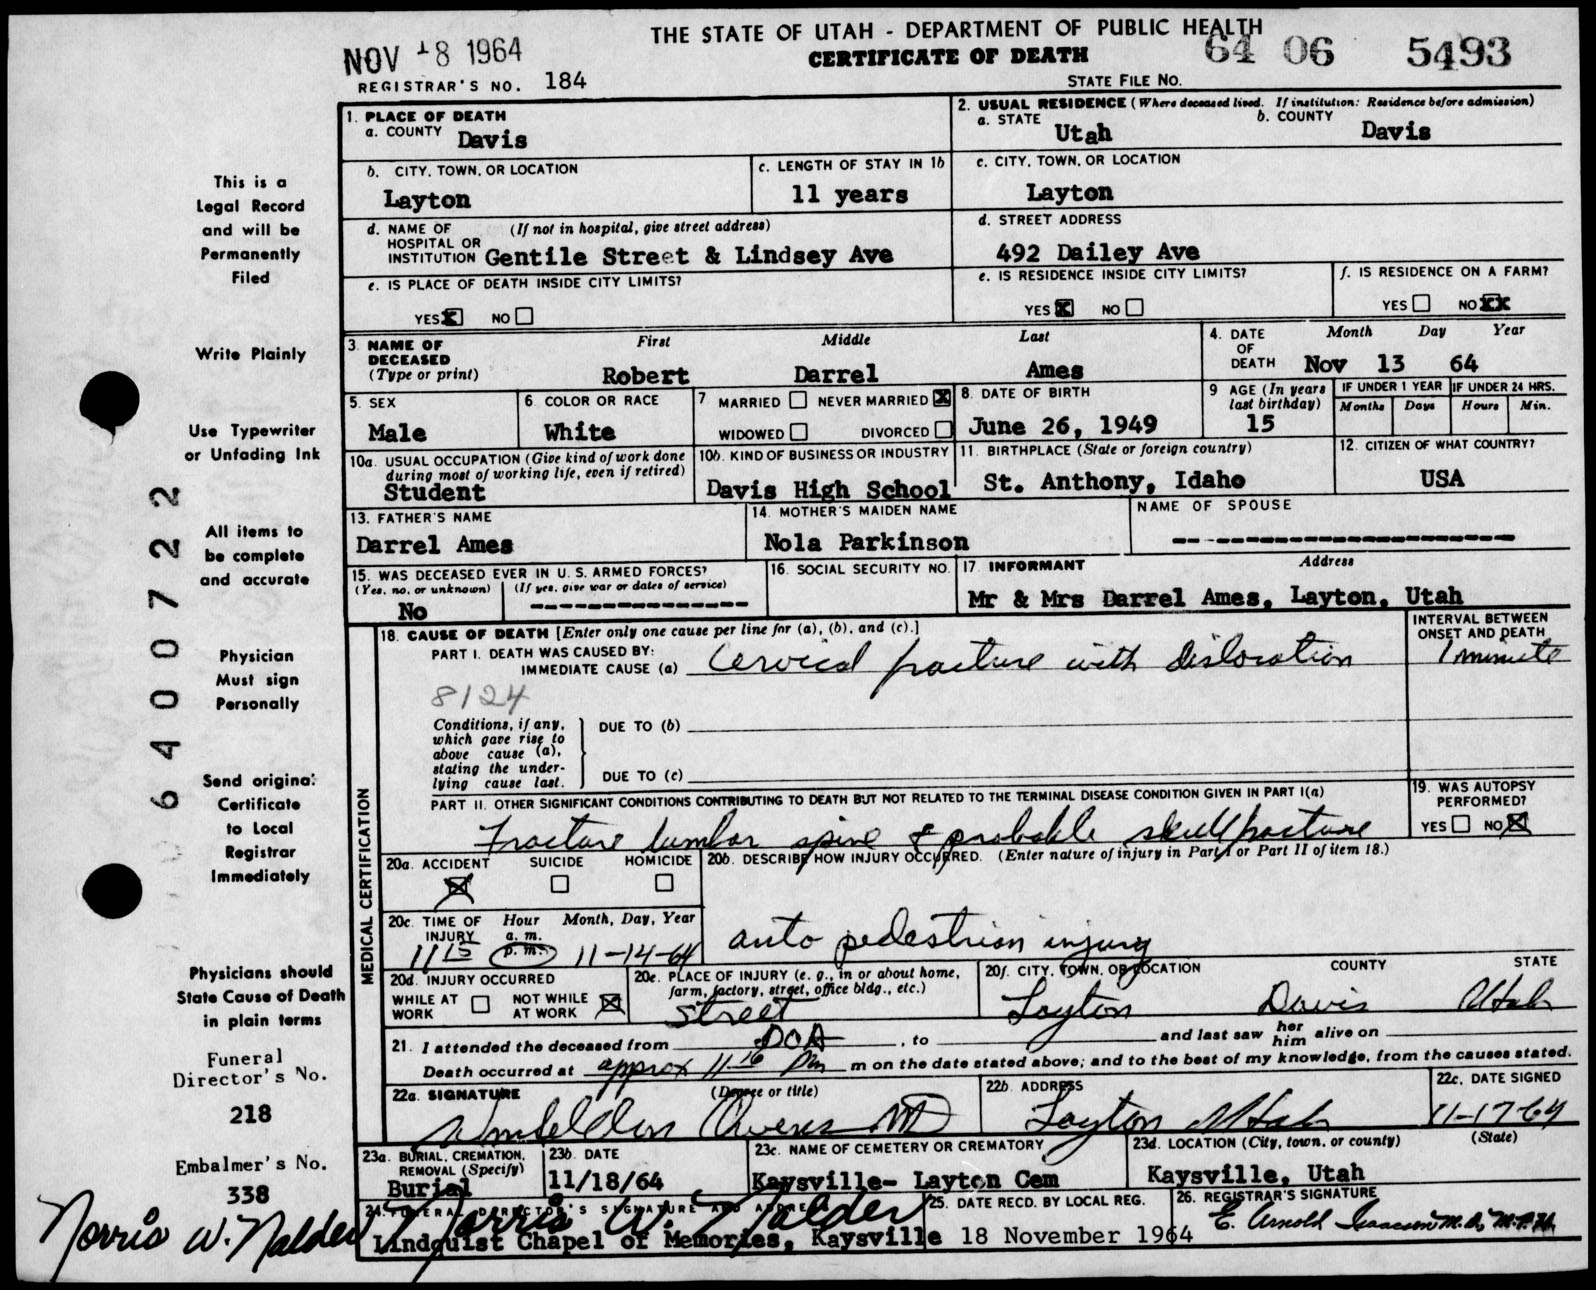 THE STATE OF UTAH - DEPARTMENT OF PUBLIC HEALTH
NOV 18 1964
CERTIFICATE OF DEATH
64 06 5493
REGISTRAR'S NO. 184
STATE FILE NO.
1. PLACE OF DEATH
a. COUNTY Davis
2. USUAL RESIDENCE (Where deceased lived. If institution: Residence before admission)
a. STATE Utah b. COUNTY Davis
b. CITY, TOWN, OR LOCATION Layton
c. LENGTH OF STAY IN 1b 11 years
c. CITY, TOWN, OR LOCATION Layton
d. NAME OF HOSPITAL OR INSTITUTION (If not in hospital, give street address) Gentile Street & Lindsey Ave
d. STREET ADDRESS 492 Dailey Ave
e. IS PLACE OF DEATH INSIDE CITY LIMITS?
YES X NO
e. IS RESIDENCE INSIDE CITY LIMITS?
YES X NO
f. IS RESIDENCE ON A FARM?
YES NO XX
3. NAME OF DECEASED (Type or print)
First Middle Last
Robert Darrel Ames
4. DATE OF DEATH Month Day Year
Nov 13 64
5. SEX Male
6. COLOR OR RACE White
7 MARRIED NEVER MARRIED X
WIDOWED DIVORCED
8. DATE OF BIRTH June 26, 1949
9 AGE (In years last birthday) 15
IF UNDER 1 YEAR Months Days
IF UNDER 24 HRS. Hours Min.
10a. USUAL OCCUPATION (Give kind of work done during most of working life, even if retired) Student
10b. KIND OF BUSINESS OR INDUSTRY Davis High School
11. BIRTHPLACE (State or foreign country) St. Anthony, Idaho
12. CITIZEN OF WHAT COUNTRY? USA
13. FATHER'S NAME Darrel Ames
14. MOTHER'S MAIDEN NAME Nola Parkinson
NAME OF SPOUSE -----------------
15. WAS DECEASED EVER IN U.S. ARMED FORCES?
(Yes, no, or unknown) No
(If yes, give war or dates of service) --------------
16. SOCIAL SECURITY NO.
17. INFORMANT Address
Mr & Mrs Darrel Ames, Layton, Utah
MEDICAL CERTIFICATION
18. CAUSE OF DEATH [Enter only one cause per line for (a), (b), and (c).]
INTERVAL BETWEEN ONSET AND DEATH
PART I. DEATH WAS CAUSED BY:
IMMEDIATE CAUSE (a) Cervical fracture with dislocation 1 minute
8124
Conditions, if any, which gave rise to above cause (a), stating the underlying cause last.
DUE TO (b)
DUE TO (c)
PART II. OTHER SIGNIFICANT CONDITIONS CONTRIBUTING TO DEATH BUT NOT RELATED TO THE TERMINAL DISEASE CONDITION GIVEN IN PART I(a)
Fracture lumbar spine & probable skull fracture
19. WAS AUTOPSY PERFORMED?
YES NO X
20a. ACCIDENT X SUICIDE HOMICIDE
20b. DESCRIBE HOW INJURY OCCURRED. (Enter nature of injury in Part I or Part II of item 18.)
auto pedestrian injury
20c. TIME OF INJURY Hour a.m. p.m. Month, Day, Year
11 15 11-14-64
20d. INJURY OCCURRED
WHILE AT WORK NOT WHILE AT WORK X
20e. PLACE OF INJURY (e. g., in or about home, farm, factory, street, office bldg., etc.)
street
20f. CITY, TOWN, OR LOCATION COUNTY STATE
Layton Davis Utah
21. I attended the deceased from DOA, to and last saw her him alive on
Death occurred at approx 11 16 pm m on the date stated above; and to the best of my knowledge, from the causes stated.
22a. SIGNATURE (Degree or title)
Owens MD
22b. ADDRESS Layton Utah
22c. DATE SIGNED 11-17-64
23a. BURIAL, CREMATION, REMOVAL (Specify) Burial
23b. DATE 11/18/64
23c. NAME OF CEMETERY OR CREMATORY Kaysville- Layton Cem
23d. LOCATION (City, town, or county) (State)
Kaysville, Utah
24. FUNERAL DIRECTOR'S SIGNATURE AND ADDRESS
Norris W. Nalder
Lindquist Chapel of Memories, Kaysville
25. DATE RECD. BY LOCAL REG. 18 November 1964
26. REGISTRAR'S SIGNATURE
E. Arnold Isaacson M.D. M.P.H.
This is a
Legal Record
and will be
Permanently
Filed
Write Plainly
Use Typewriter
or Unfading Ink
All items to
be complete
and accurate
Physician
Must sign
Personally
Send original
Certificate
to Local
Registrar
Immediately
Physicians should
State Cause of Death
in plain terms
Funeral
Director's No.
218
Embalmer's No.
338
Norris W. Nalder
64 00722